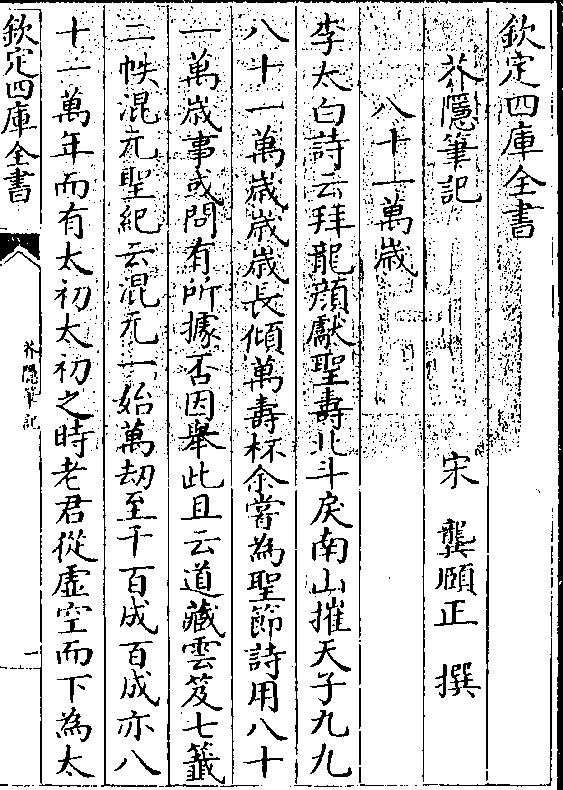 欽定四庫全書
芥隱筆記
宋　龔頤正　撰
八十一萬歲
李太白詩云拜龍顔獻聖壽北斗戾南山摧天子九九
八十一萬歲歲歲長傾萬壽杯余嘗為聖節詩用八十
一萬歲事或問有所據否因舉此且云道藏雲笈七籤
二帙混元聖紀云混元一始萬劫至千百成百成亦八
十一萬年而有太初太初之時老君從虛空而下為太
欽定四庫全書
芥隱筆記
一